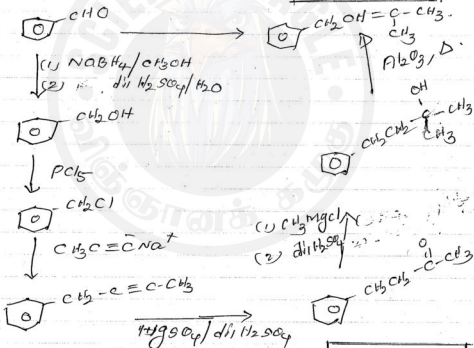 CHO
CH2OH = C - CH3
CH3
(1) NaBH4/CH3OH
(2) dil H2SO4/H2O
Al2O3, Δ
CH2OH
OH
CH2CH2 C - CH3
CH3
PCl5
CH2Cl
CH3C≡C̄Na+
(1) CH3MgCl
(2) dil H2SO4
O
CH2CH2 - C - CH3
CH2 - C ≡ C - CH3
HgSO4/dil H2SO4